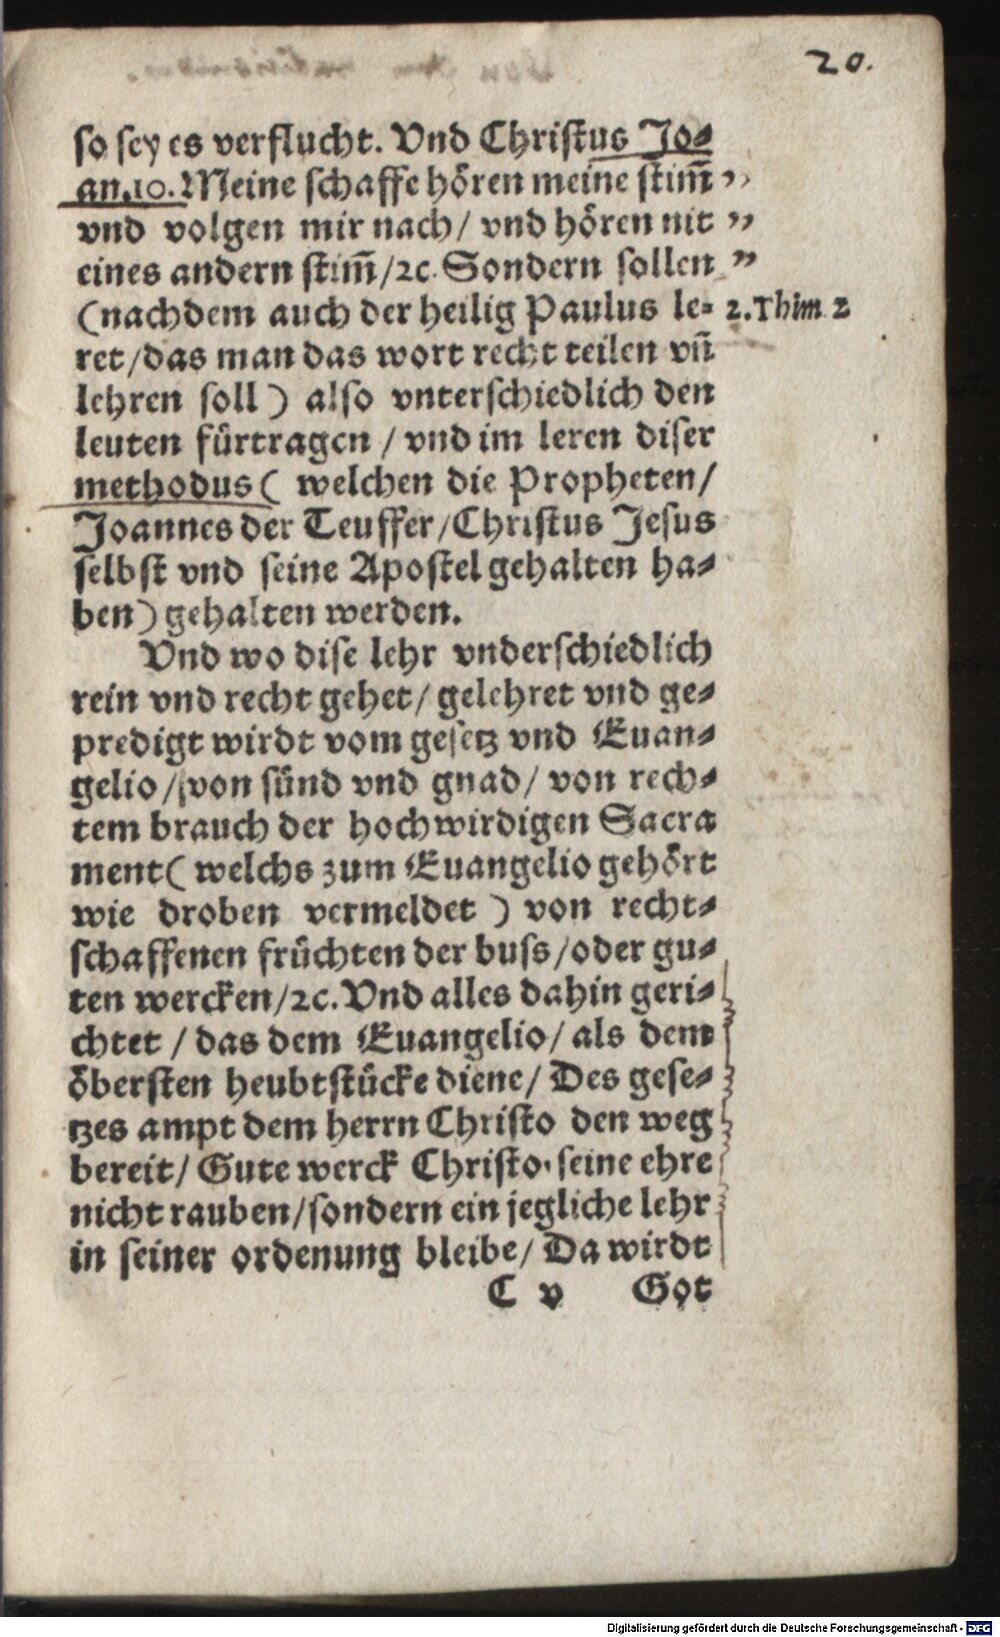 20.
so sey es verflucht. Vnd Christus Jo-
an.10. Meine schaffe hören meine stim̄ ,,
vnd volgen mir nach/ vnd hören nit ,,
eines andern stim̄/ꝛc. Sondern sollen ,,
(nachdem auch der heilig Paulus le- 2.Thim 2
ret/das man das wort recht teilen vn̄
lehren soll) also vnterschiedlich den
leuten fürtragen / vnd im leren diser
methodus( welchen die Propheten/
Joannes der Teuffer/Christus Jesus
selbst vnd seine Apostel gehalten ha-
ben) gehalten werden.
Vnd wo dise lehr vnderschiedlich
rein vnd recht gehet/ gelehret vnd ge-
predigt wirdt vom gesetz vnd Euan-
gelio/ von sünd vnd gnad/ von rech-
tem brauch der hochwirdigen Sacra
ment( welchs zum Euangelio gehört
wie droben vermeldet ) von recht-
schaffenen früchten der buss/oder gu-
ten wercken/ꝛc. Vnd alles dahin geri-
chtet / das dem Euangelio/ als dem
öbersten heubtstücke diene/ Des gese-
tzes ampt dem herrn Christo den weg
bereit/ Gute werck Christo seine ehre
nicht rauben/sondern ein jegliche lehr
in seiner ordenung bleibe/ Da wirdt
C v Got
Digitalisierung gefördert durch die Deutsche Forschungsgemeinschaft - DFG